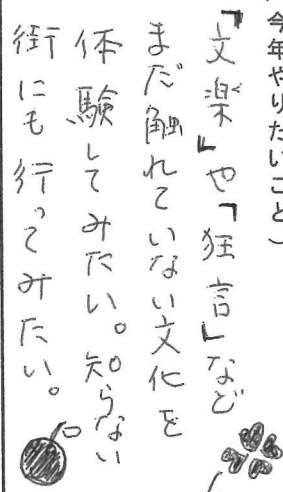 今年やりたいこと)
『文楽』や『狂言』など
まだ触れていない文化を
体験してみたい。知らない
街にも行ってみたい。